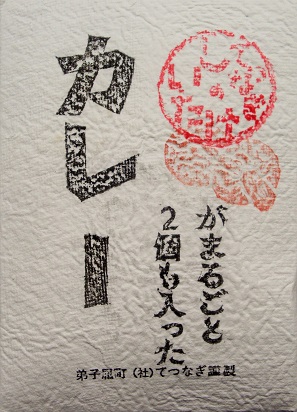 しいたけ
がまるごと
2個も入った
カレー
弟子屈町（社）てつなぎ謹製